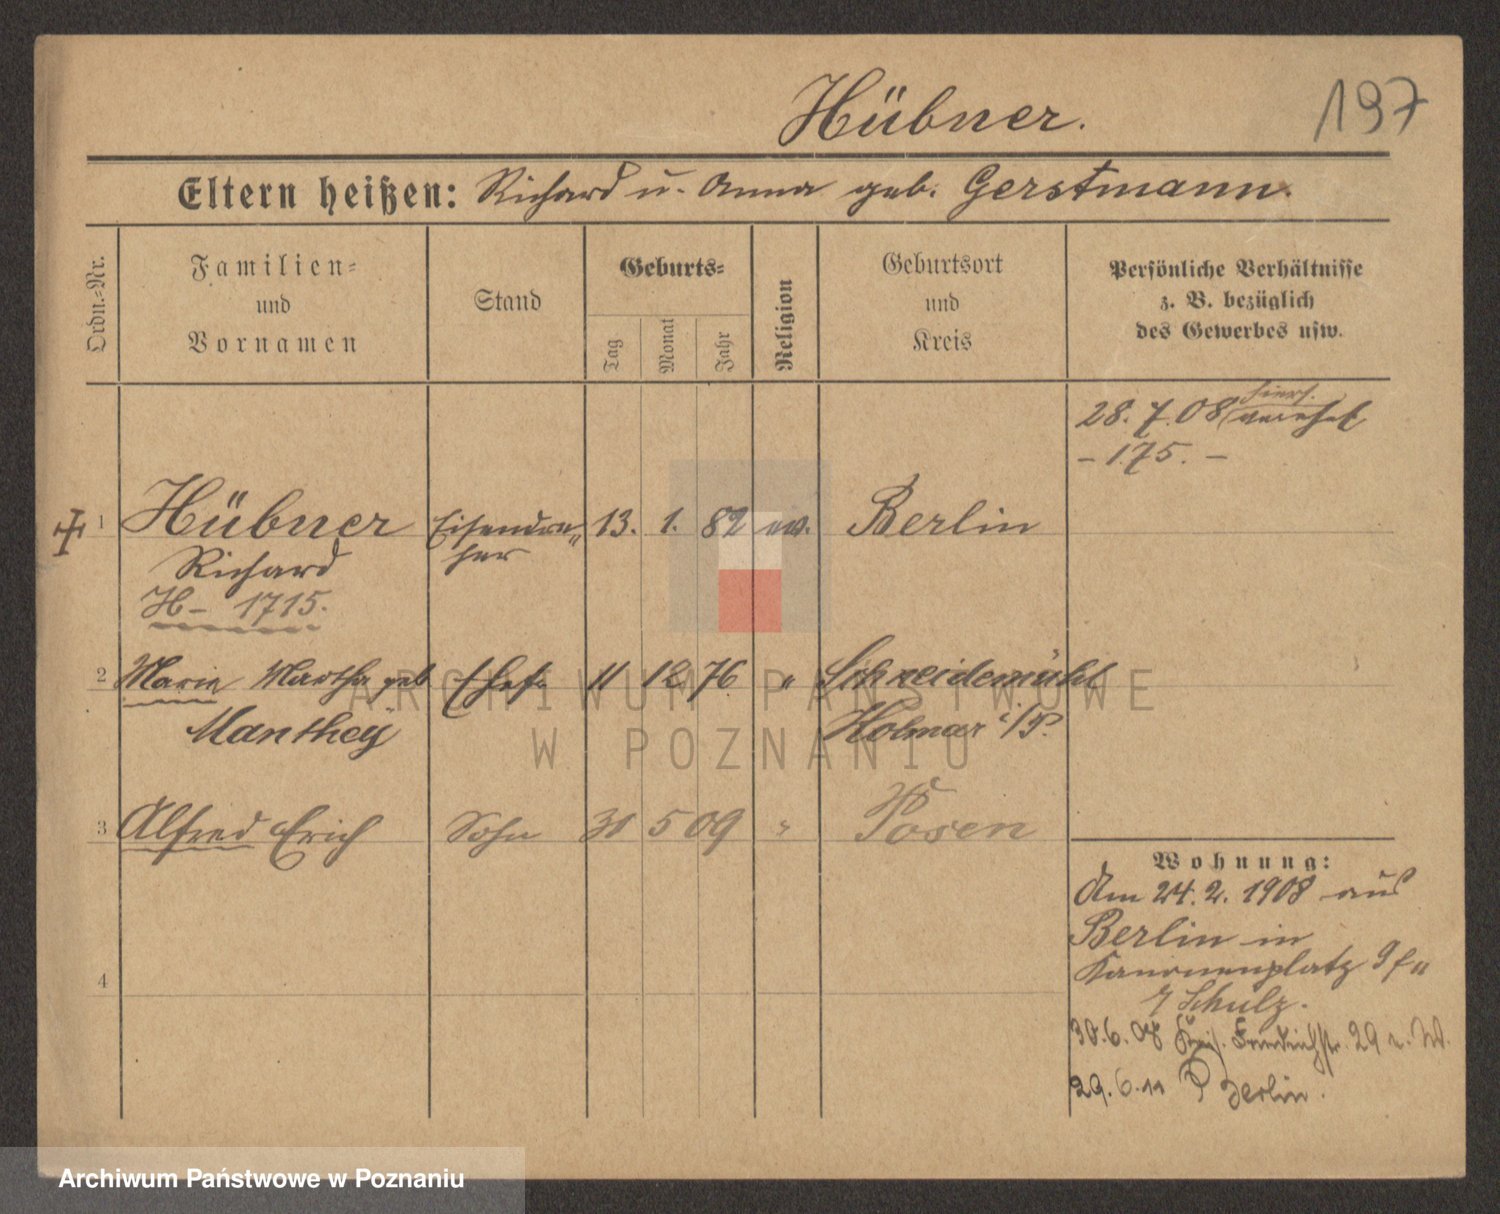 Hübner.
197
Eltern heißen: Richard u. Anna geb. Gerstmann.
Ordn.=Nr.
Familien=
und
Vornamen
Stand
Geburts=
Tag
Monat
Jahr
Religion
Geburtsort
und
Kreis
Persönliche Verhältnisse
z. B. bezüglich
des Gewerbes usw.
hiers.
28. 7. 08 verehel
– 175. –
1 Hübner Eisendre„ 13. 1. 82 ev. Berlin
Richard her
H – 1715.
2 Marie Martha geb Ehefr 11 12 76 „ Schneidemühl
Manthey Kolmar i/P.
3 Alfred Erich Sohn 31 5 09 „ Posen
4
Wohnung:
Am 24. 2. 1908 aus
Berlin in
Kanonenplatz 9 f„
Schulz.
30. 6. 08 Friedrichstr. 29 n. W.
29. 6. 11 Berlin.
ARCHIWUM PAŃSTWOWE
W POZNANIU
Archiwum Państwowe w Poznaniu